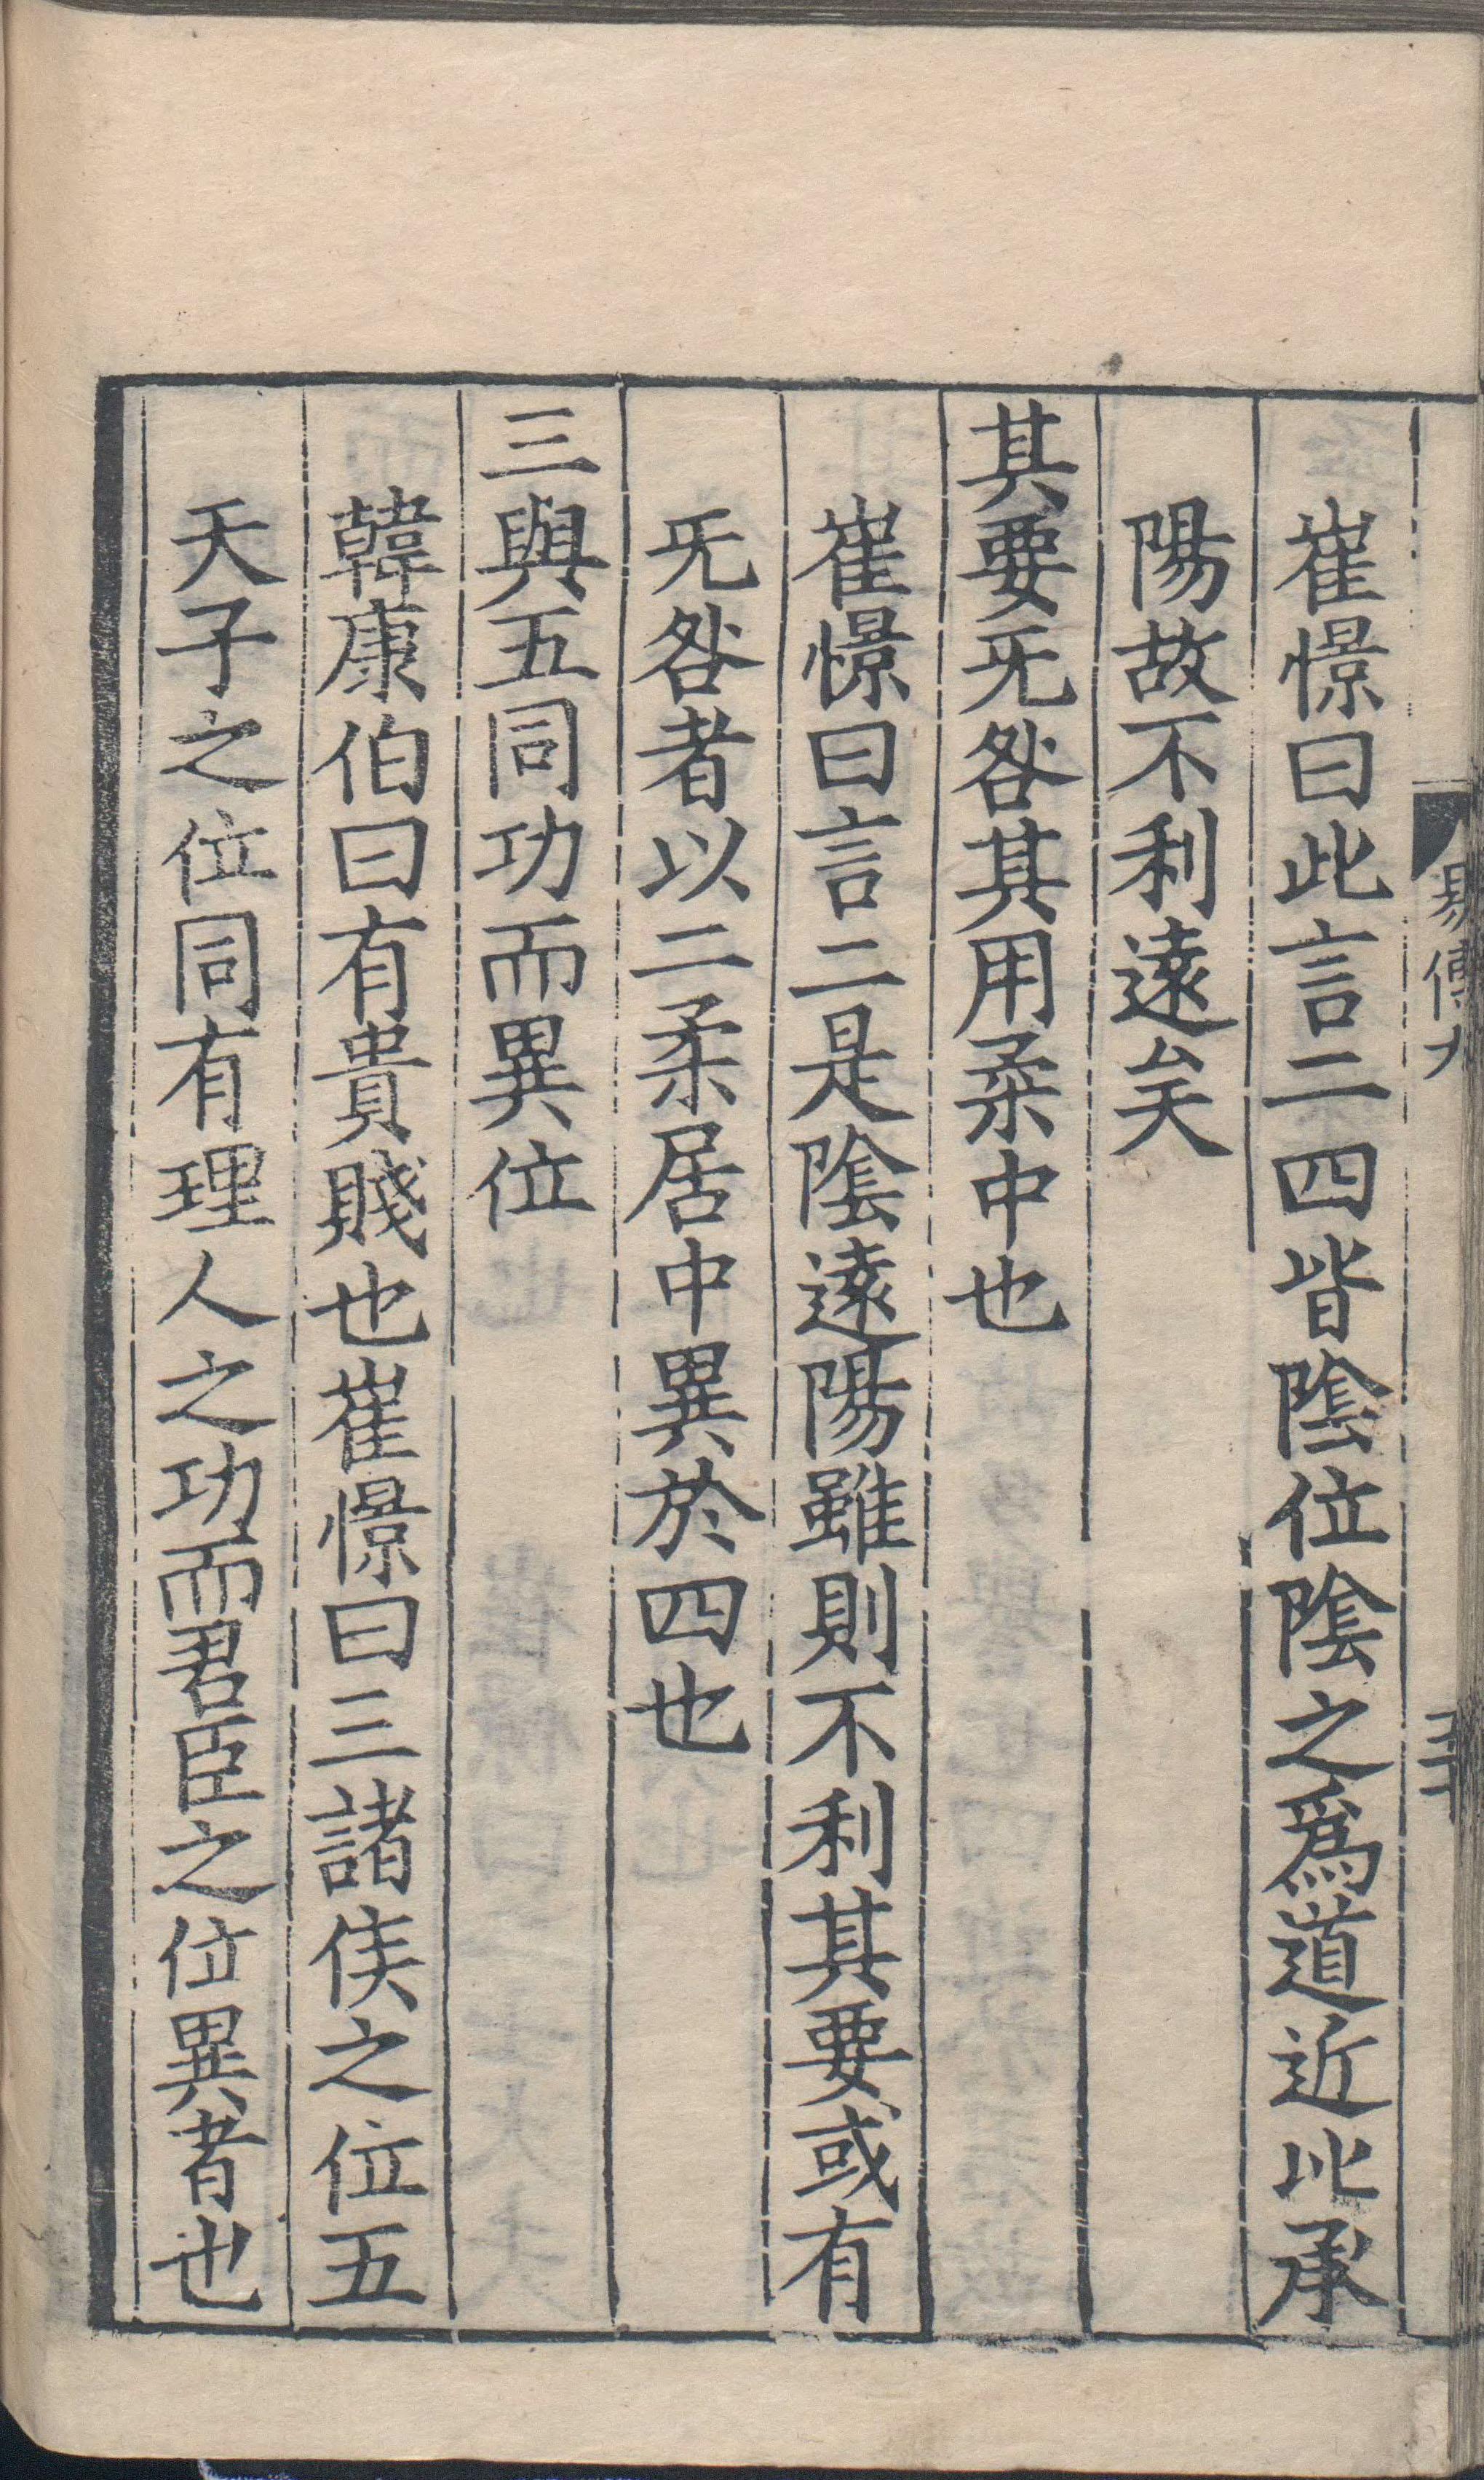 崔憬曰此言二四皆隂位隂之爲道近比承
陽故不利遠矣
其要旡咎其用柔中也
崔憬曰言二是隂遠陽雖則不利其要或有
旡咎者以二柔居中異於四也
三與五同功而異位
韓康伯曰有貴賤也崔憬曰三諸侯之位五
天子之位同有理人之功而君臣之位異者也
易傳九